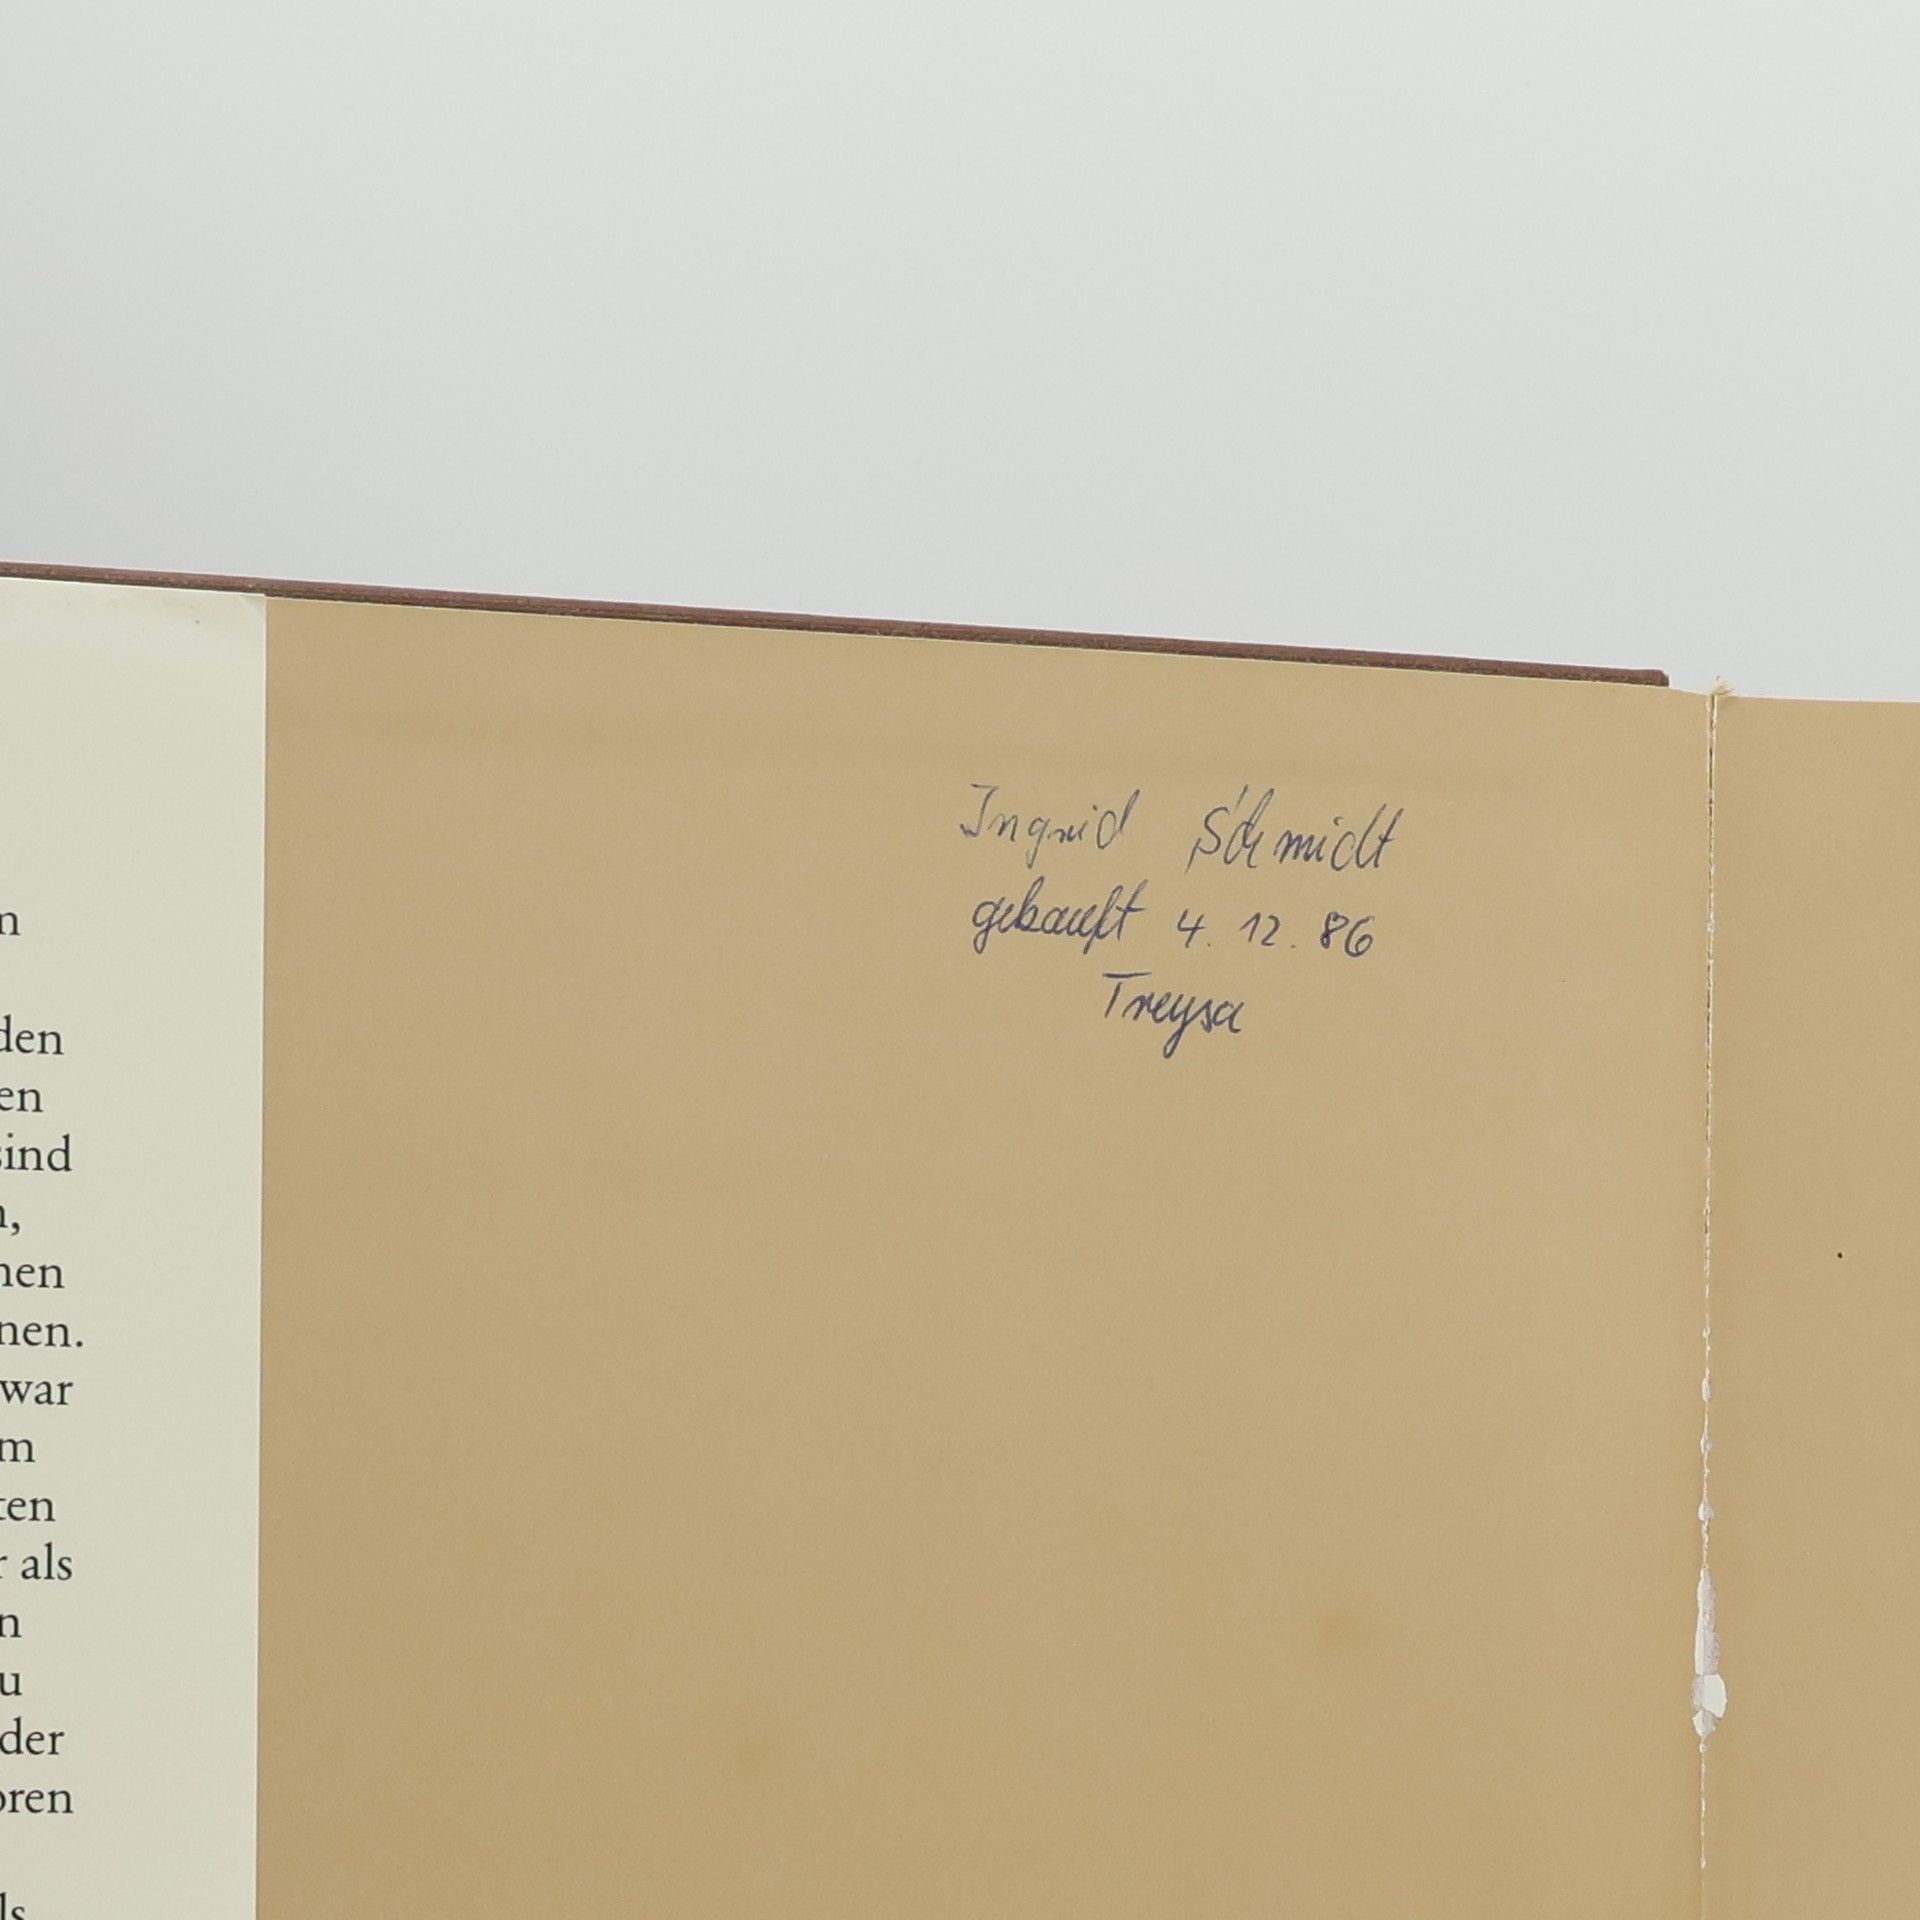 n
den
en
sind
n,
hen
nen.
war
m
ten
r als
n
u
der
oren
ls
Ingrid Schmidt
gekauft 4. 12. 86
Treysa